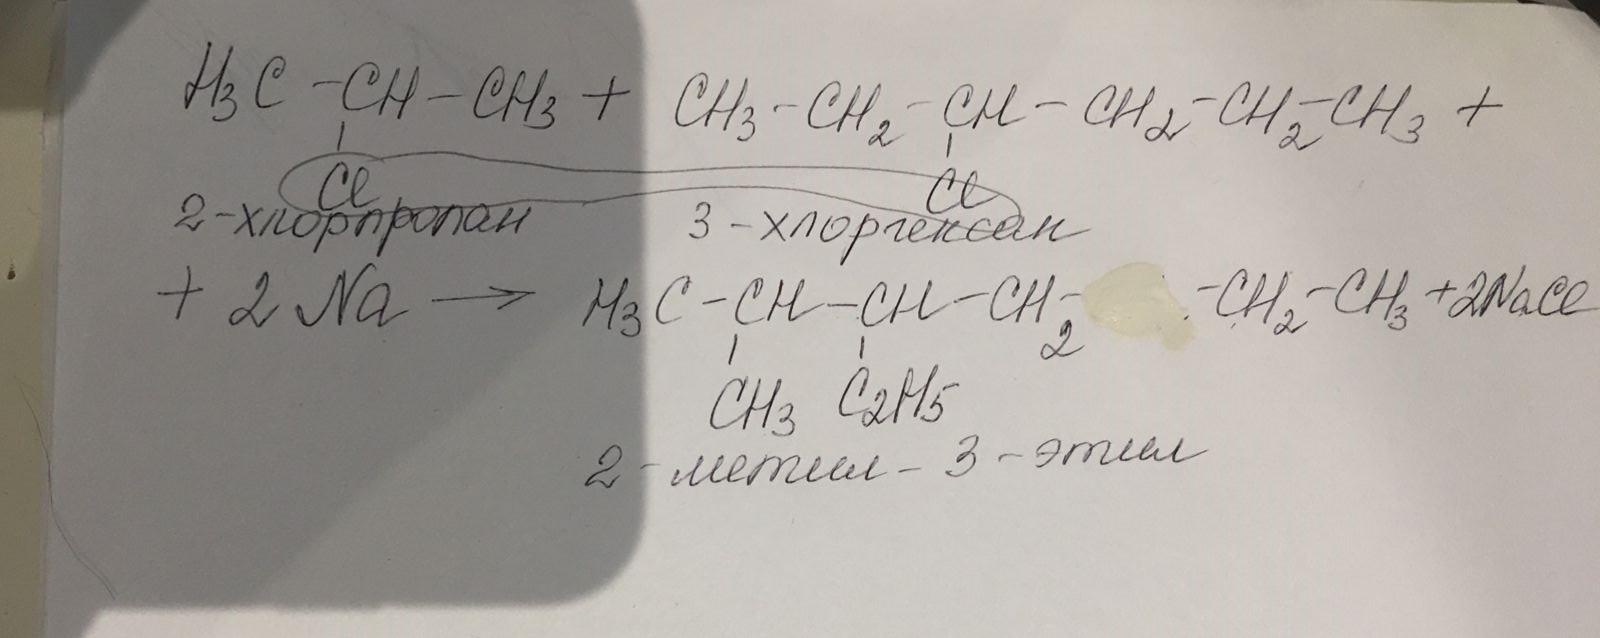 H₃C – CH – CH₃ + CH₃ – CH₂ – CH – CH₂ – CH₂ – CH₃ +
Cl Cl
2-хлорпропан 3-хлоргексан
+ 2 Na → H₃C – CH – CH – CH₂ – – CH₂ – CH₃ + 2NaCl
CH₃ C₂H₅
2-метил-3-этил